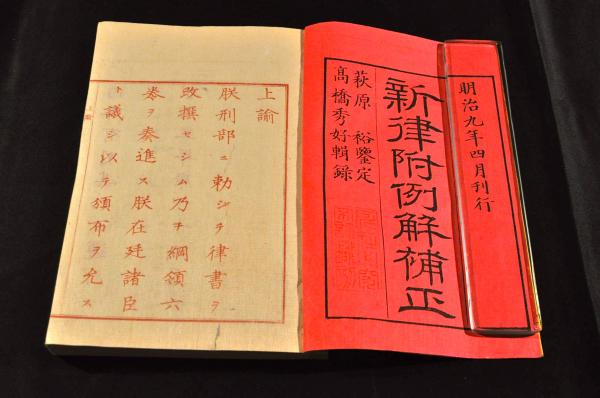 明治九年四月刊行
新律附例解補正
萩原 裕鑒定
高橋秀好輯録
上諭
朕刑部ニ勅シテ律書ヲ
改撰セシム乃チ綱領六
巻ヲ奏進ス朕在廷諸臣
ト議シ以テ頒布ヲ允ス